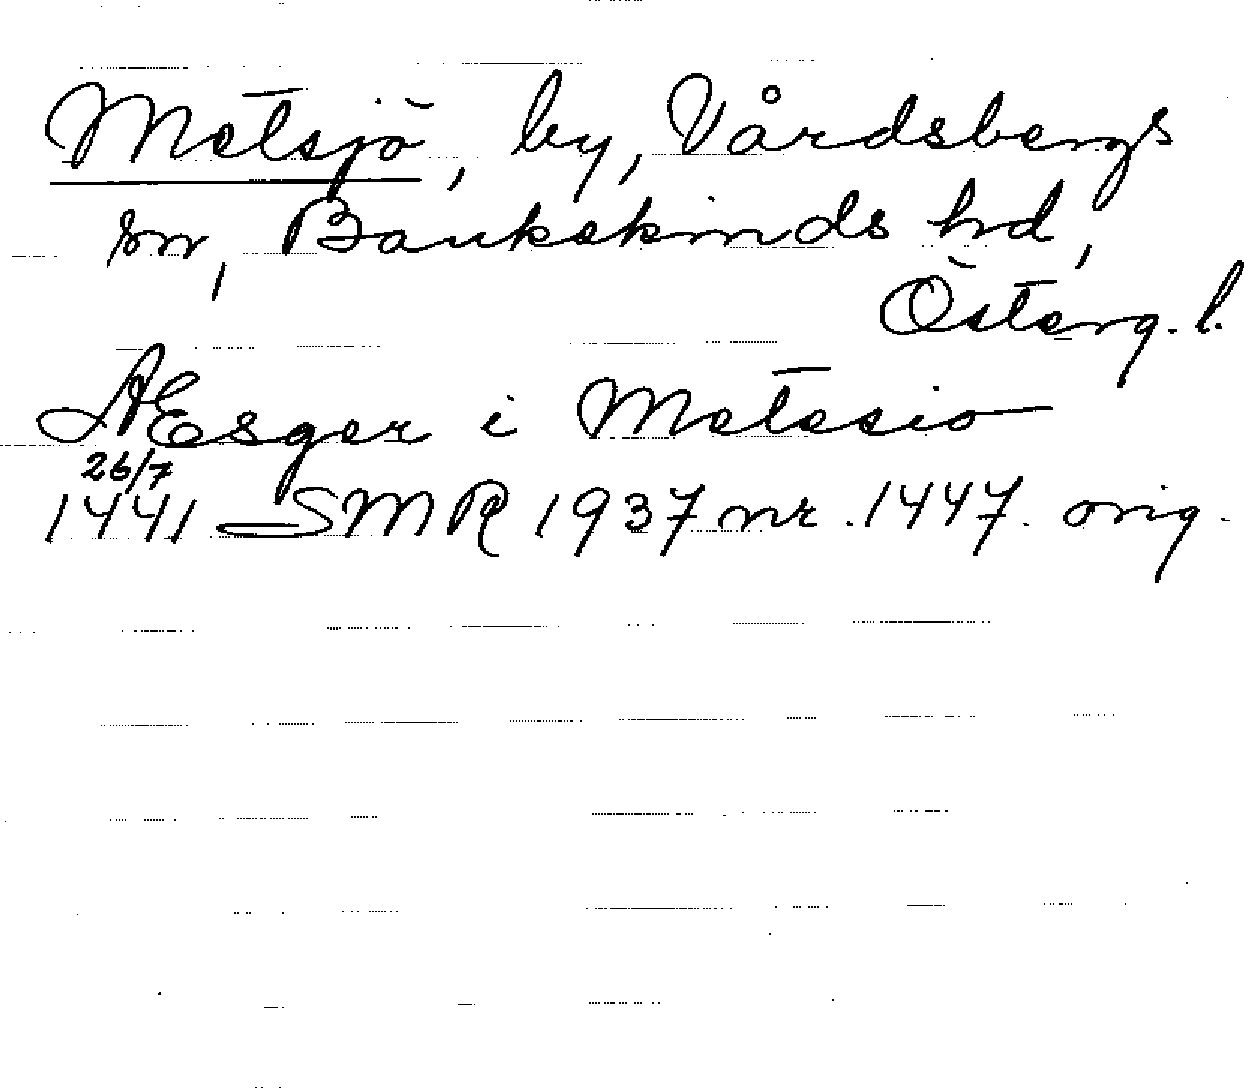 Metsjö, by, Vårdsbergs
sn, Bankekinds hd,
Österg. l.
Æsger i Metesio
26/7
1441 SMR 1937 nr. 1447. orig.